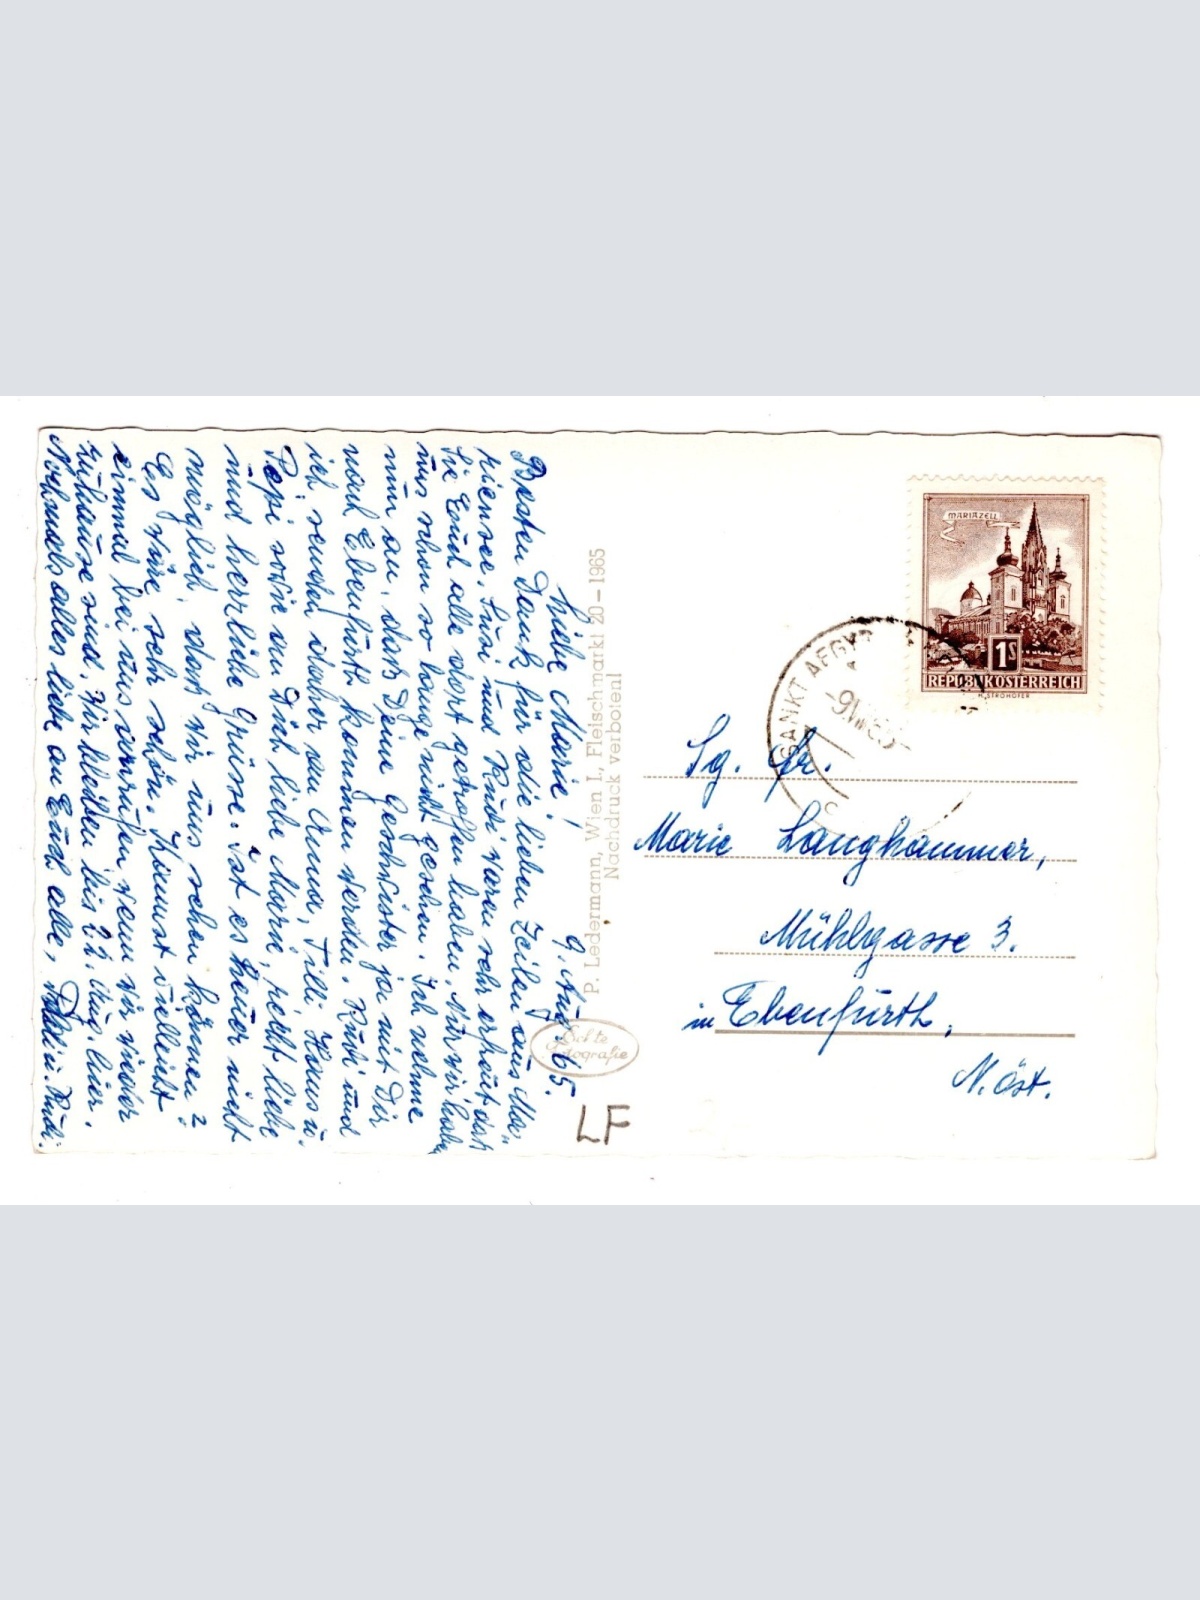 Liebe Marie! 9. Aug. 65.
Besten Dank für die lieben Zeilen aus Ma-
riensee. Susi und Rudi waren sehr erfreut daß
Sie Euch alle dort getroffen haben. Nur wir haben
uns schon so lange nicht gesehen. Ich nehme
nun an, daß Deine Geschwister ja mit Dir
nach Ebenfurth kommen werden. Rudi und
ich senden daher an Anna, Tilli, Hans u.
Pepi sowie an Dich liebe Marie, recht liebe
und herzliche Grüsse. Ist es heuer nicht
möglich, daß wir uns sehen können?
Es wäre sehr schön. Kannst vielleicht
einmal bei uns anrufen wenn wir wieder
zuhause sind. Wir bleiben bis 22. Aug. hier.
Nochmals alles liebe an Euch alle, u. Rudi.
P. Ledermann, Wien I., Fleischmarkt 20 – 1965
Nachdruck verboten!
Echte
Fotografie
LF
MARIAZELL
1S
REPUBLIK ÖSTERREICH
H. STROHOFER
SANKT AEGY
Sg. Fr.
Marie Langhammer,
Mühlgasse 3.
in Ebenfurth,
N. Öst.